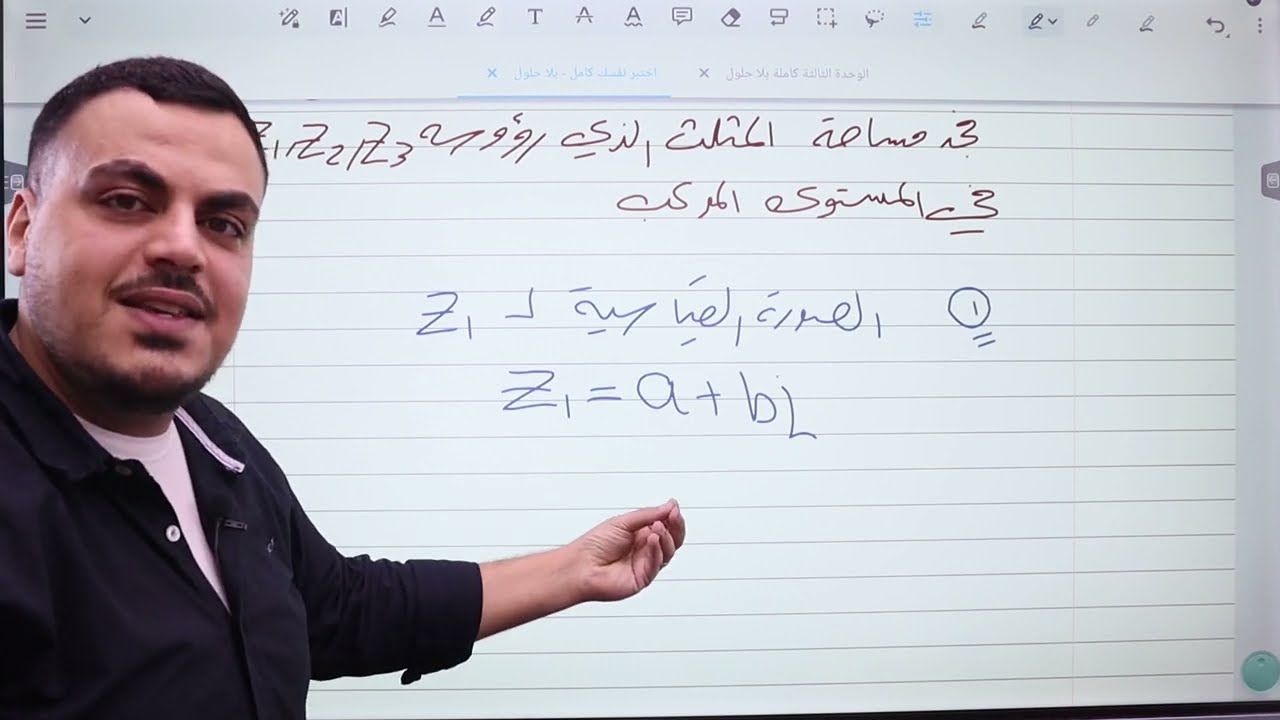 الوحدة الثالثة كاملة بلا حلول × اختبر نفسك كامل - بلا حلول ×
جد مساحة المثلث الذي رؤوسه Z1, Z2, Z3
في المستوى المركب
١ الصورة القياسية لـ Z1
Z1 = a + bi